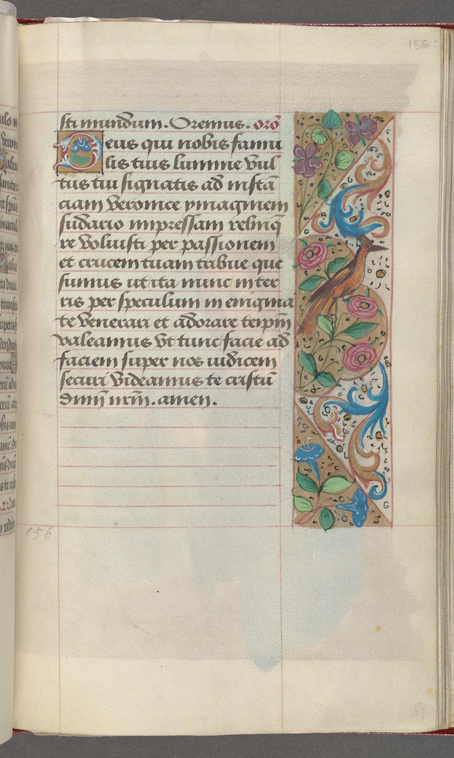 156
sti mundum. Oremus. orō
Deus qui nobis famu
lis tuis lumine vul
tus tui signatis ad instā
ciam veronice ymaginem
sudario impressam relinq̄
re voluisti per passionem
et crucem tuam tribue que
sumus ut ita nunc in ter
ris per speculum in enigma
te venerari et adorare te ipm̄
valeamus vt tunc facie ad
faciem super nos iudicem
securi videamus te cristū
dnm̄ nrm̄. amen.
156